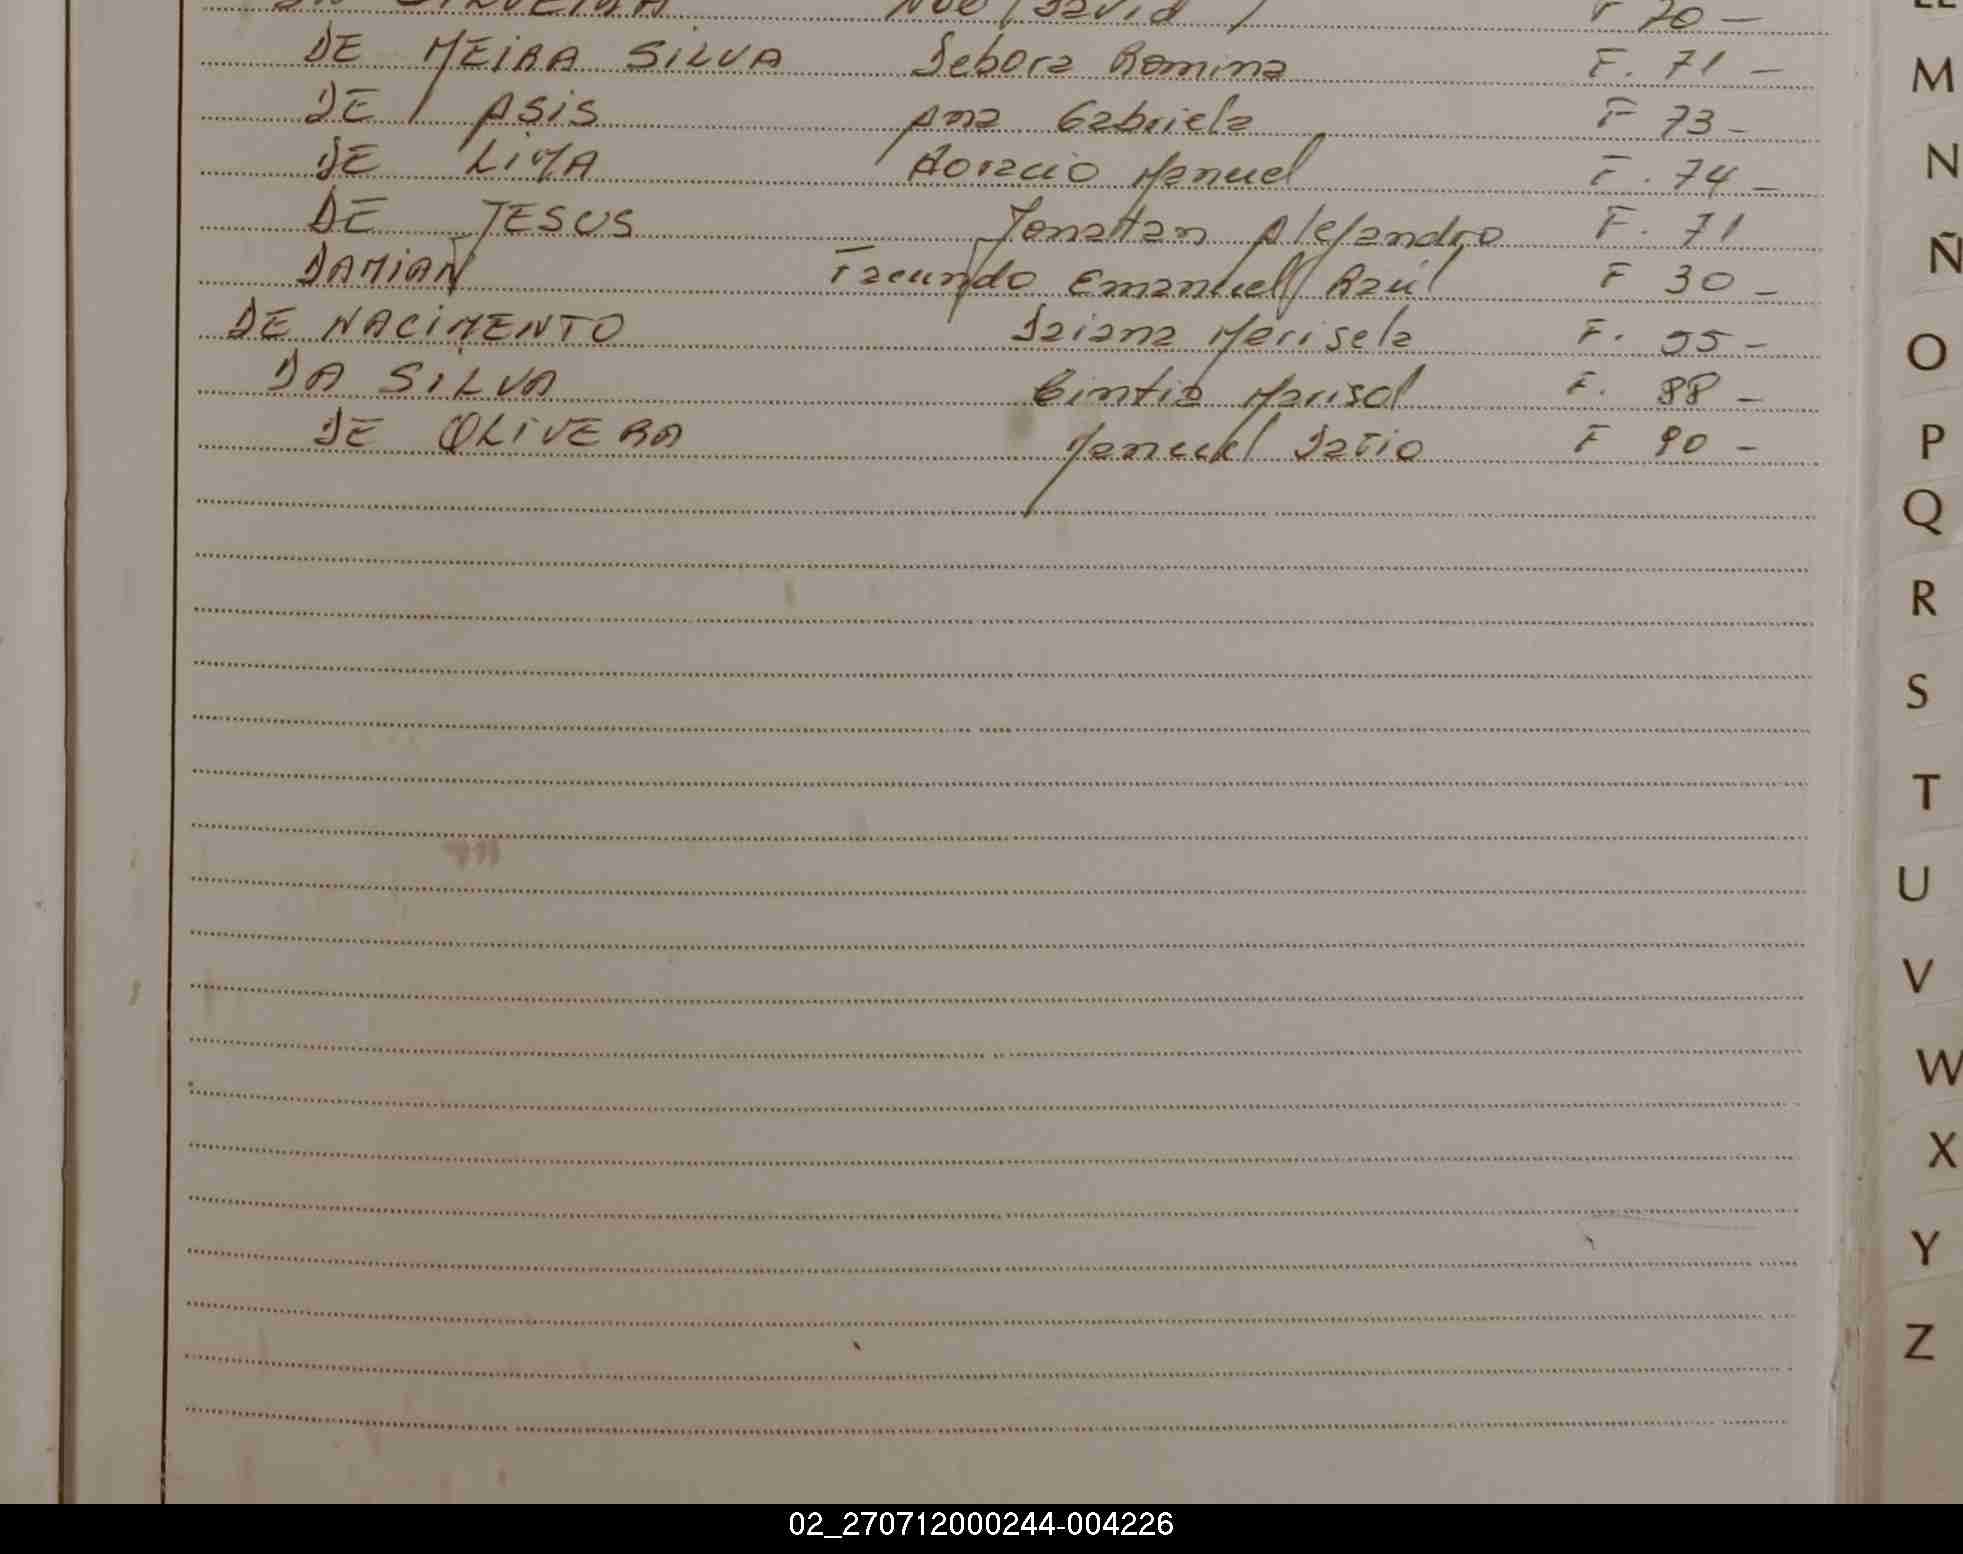 DA SILVEIRA Noe David F 70 -
DE MEIRA SILVA Debora Romina F. 71 -
DE ASIS Ana Gabriela F 73 -
DE LIMA Horacio Manuel F. 74 -
DE JESUS Jonattan Alejandro F. 71
DAMIAN Facundo Emanuel Raúl F 30 -
DE NACIMENTO Daiana Marisela F. 55 -
DA SILVA Cintia Marisol F. 88 -
DE OLIVERA Manuel Dario F 90 -
LL
M
N
Ñ
O
P
Q
R
S
T
U
V
W
X
Y
Z
02_270712000244-004226